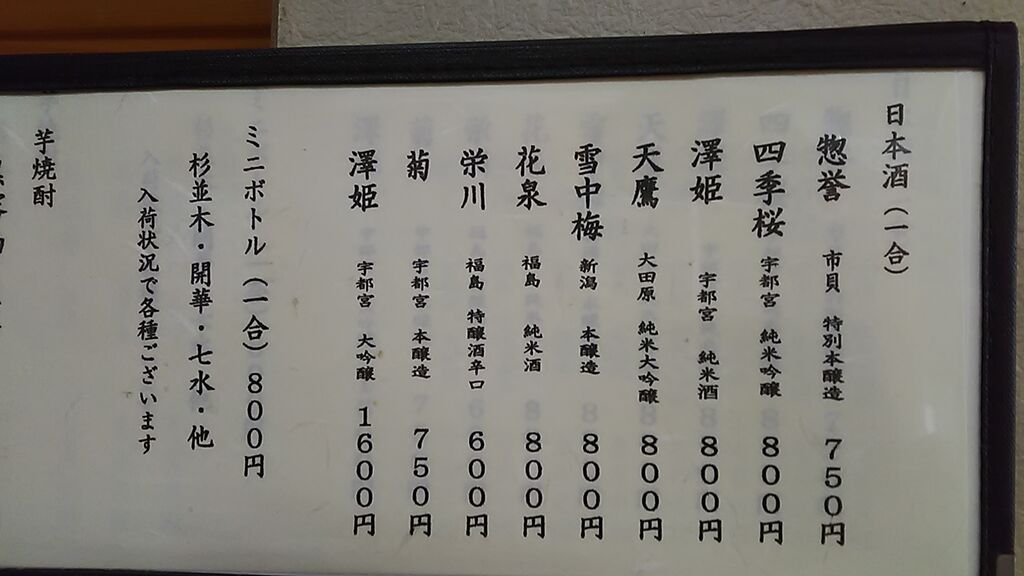 日本酒（一合）
惣誉 市貝 特別本醸造 ７５０円
四季桜 宇都宮 純米吟醸 ８００円
澤姫 宇都宮 純米酒 ８００円
天鷹 大田原 純米大吟醸 ８００円
雪中梅 新潟 本醸造 ８００円
花泉 福島 純米酒 ８００円
栄川 福島 特醸酒辛口 ６００円
菊 宇都宮 本醸造 ７５０円
澤姫 宇都宮 大吟醸 １６００円
ミニボトル（一合）８００円
杉並木・開華・七水・他
入荷状況で各種ございます
芋焼酎